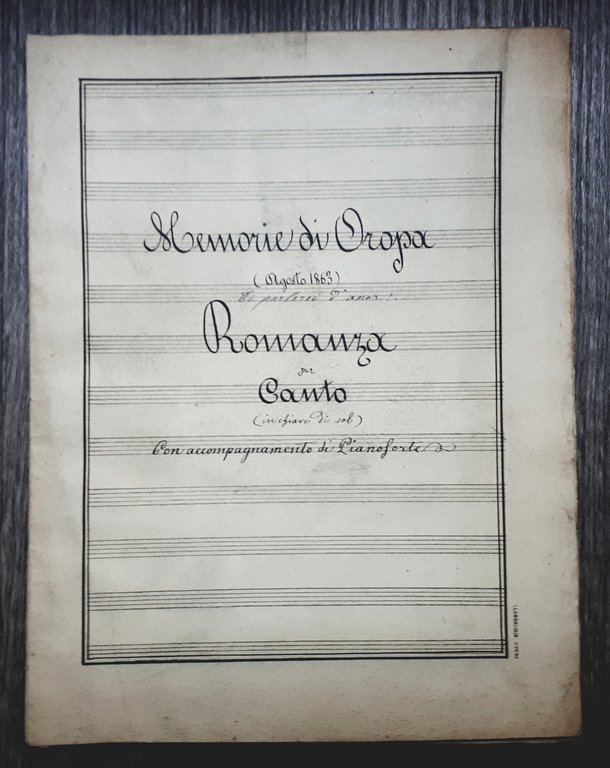 Memorie di Oropa
(Agosto 1863)
Ti parlerei d'amor!..
Romanza
per
Canto
(in chiave di sol)
Con accompagnamento di Pianoforte